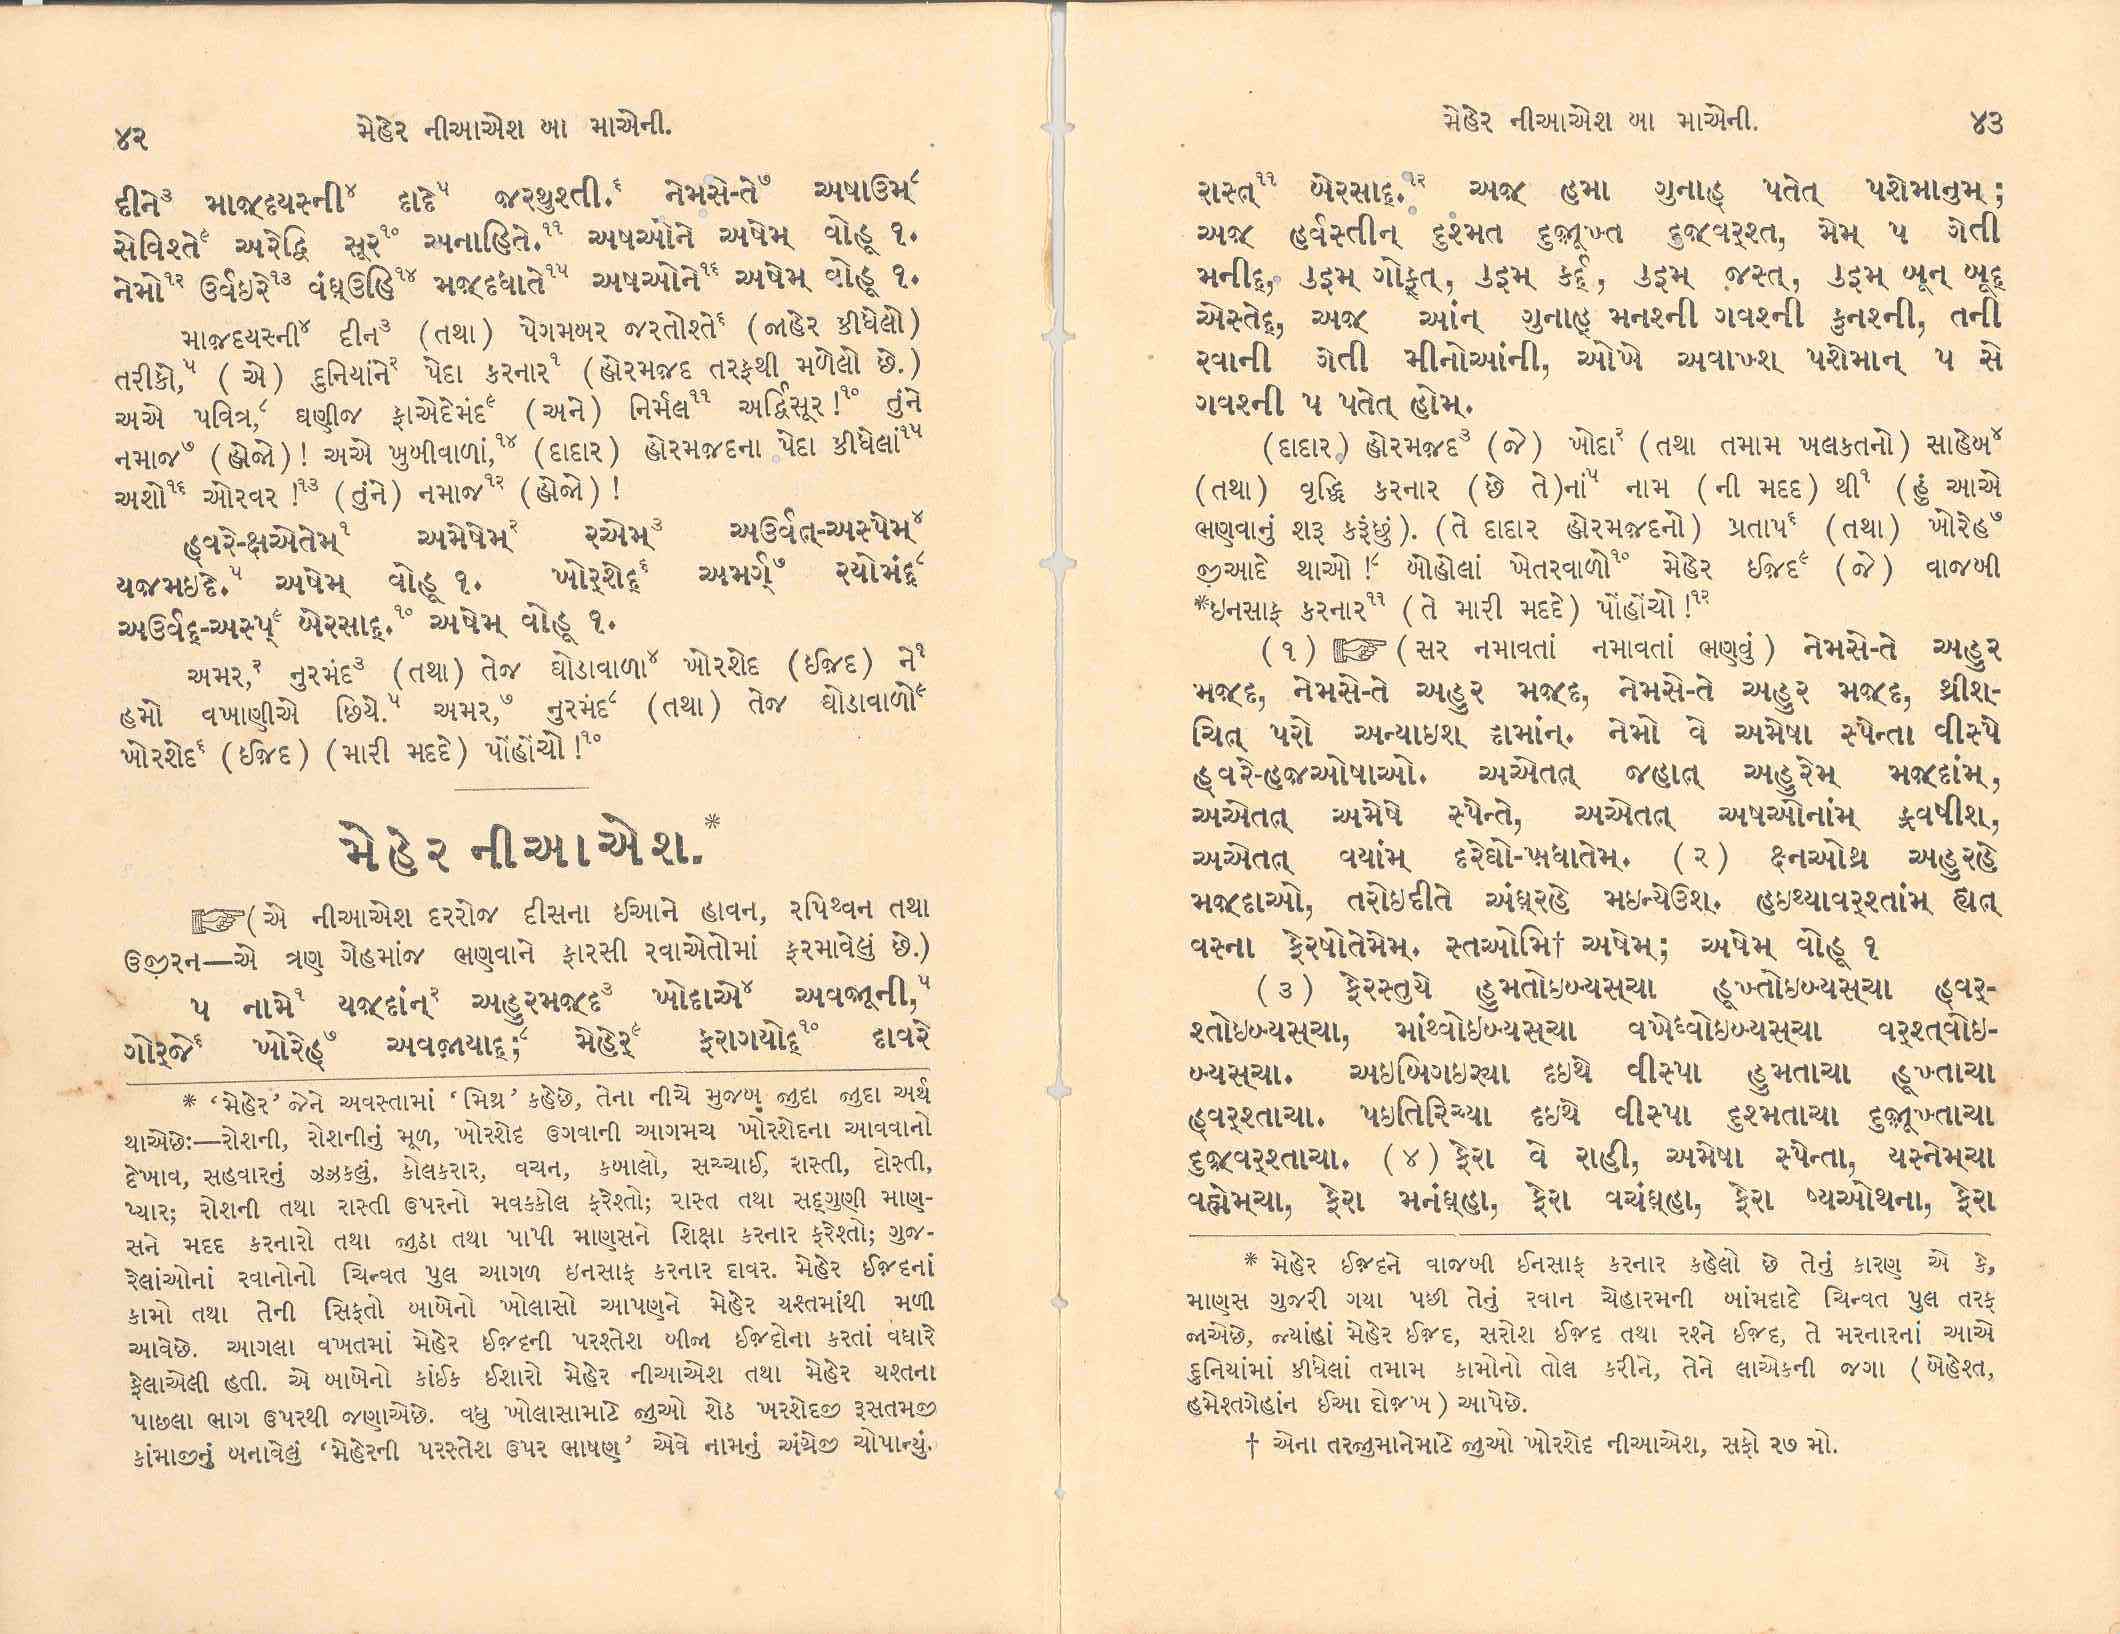 ૪૨ મેહેર નીઆએશ બા માએની.
દીને૩ માજ઼્દયસ્ની૪ દાદે૫ જ઼રથુશ્તી.૬ નેમસે-તે૭ અષાઉમ્૮
સેવિશ્તે૯ અરેદ્વિ સૂર૧૦ અનાહિતે.૧૧ અષઓંને અષેમ્ વોહૂ ૧.
નેમો૧૨ ઉર્વઇરે૧૩ વંઘ્ઉહિ૧૪ મજ઼્દધાતે૧૫ અષઓને૧૬ અષેમ્ વોહૂ ૧.
માજ઼દયસ્ની૪ દીન૩ (તથા) પેગમબર જરતોશ્તે૬ (જાહેર કીધેલો)
તરીકો,૫ (એ) દુનિયાંને૨ પેદા કરનાર૧ (હોરમજ઼દ તરફથી મળેલો છે.)
અએ પવિત્ર,૮ ઘણીજ ફાએદેમંદ૯ (અને) નિર્મલ૧૧ અર્દ્વિસૂર!૧૦ તુંને
નમાજ૭ (હોજો)! અએ ખુબીવાળાં,૧૪ (દાદાર) હોરમજ઼દના પેદા કીધેલાં૧૫
અશો૧૬ ઓરવર!૧૩ (તુંને) નમાજ૧૨ (હોજો)!
હ્વરે-ક્ષએતેમ્૧ અમેષેમ્૨ રએમ્૩ અઉર્વત્-અસ્પેમ્૪
યજ઼મઇદે.૫ અષેમ્ વોહૂ ૧. ખોર્શેદ્૬ અમર્ગ્૭ રયોમંદ્૮
અઉર્વદ્-અસ્પ્૯ બેરસાદ્.૧૦ અષેમ્ વોહૂ ૧.
અમર,૨ નુરમંદ૩ (તથા) તેજ ઘોડાવાળા૪ ખોરશેદ (ઈજ઼દ) ને૧
હમો વખાણીએ છિયે.૫ અમર,૭ નુરમંદ૮ (તથા) તેજ ઘોડાવાળો૯
ખોરશેદ૬ (ઈજ઼દ) (મારી મદદે) પોંહોંચો!૧૦
મેહેર નીઆએશ.*
(એ નીઆએશ દરરોજ દીસના ઈઆને હાવન, રપિથ્વન તથા
ઉજ઼ીરન—એ ત્રણ ગેહમાંજ ભણવાને ફારસી રવાએતોમાં ફરમાવેલું છે.)
પ નામે૧ યજ઼્દાંન્૨ અહુરમજ઼્દ૩ ખોદાએ૪ અવજ઼ૂની,૫
ગોર્જે૬ ખોરેહ્૭ અવજ઼ાયાદ્;૮ મેહેર્૯ ફરાગયોદ્૧૦ દાવરે
* ‘મેહેર’ જેને અવસ્તામાં ‘મિથ્ર’ કહેછે, તેના નીચે મુજબ જુદા જુદા અર્થ
થાએછેઃ—રોશની, રોશનીનું મૂળ, ખોરશેદ ઉગવાની આગમચ ખોરશેદના આવવાનો
દેખાવ, સહવારનું ઝઝકલું, કોલકરાર, વચન, કબાલો, સચ્ચાઈ, રાસ્તી, દોસ્તી,
પ્યાર; રોશની તથા રાસ્તી ઉપરનો મવક્કોલ ફરેશ્તો; રાસ્ત તથા સદ્ગુણી માણ-
સને મદદ કરનારો તથા જુઠા તથા પાપી માણસને શિક્ષા કરનાર ફરેશ્તો; ગુજ-
રેલાંઓનાં રવાનોનો ચિન્વત પુલ આગળ ઇનસાફ કરનાર દાવર. મેહેર ઈજ઼દનાં
કામો તથા તેની સિફતો બાબેનો ખોલાસો આપણને મેહેર યશ્તમાંથી મળી
આવેછે. આગલા વખતમાં મેહેર ઈજ઼દની પરશ્તેશ બીજા ઈજ઼દોના કરતાં વધારે
ફેલાએલી હતી. એ બાબેનો કાંઈક ઈશારો મેહેર નીઆએશ તથા મેહેર યશ્તના
પાછલા ભાગ ઉપરથી જણાએછે. વધુ ખોલાસામાટે જુઓ શેઠ ખરશેદજી રૂસતમજી
કાંમાજીનું બનાવેલું ‘મેહેરની પરસ્તેશ ઉપર ભાષણ’ એવે નામનું અંગ્રેજી ચોપાન્યું.
મેહેર નીઆએશ બા માએની. ૪૩
રાસ્ત્૧૧ બેરસાદ્.૧૨ અજ઼્ હમા ગુનાહ્ પતેત્ પશેમાનુમ્;
અજ઼ હર્વસ્તીન્ દુશ્મત દુજ઼ૂખ્ત દુજ઼્વર્શ્ત, મેમ્ પ ગેતી
મનીદ્, ઉઇમ્ ગોફ્ત્, ઉઇમ્ કર્દ્, ઉઇમ્ જ઼સ્ત્, ઉઇમ્ બૂન્ બૂદ્
એસ્તેદ્, અજ઼ આંન્ ગુનાહ્ મનશ્ની ગવશ્ની કુનશ્ની, તની
રવાની ગેતી મીનોઆંની, ઓખે અવાખ્શ પશેમાન્ પ સે
ગવશ્ની પ પતેત્ હોમ્.
(દાદાર) હોરમજ઼દ૩ (જે) ખોદા૨ (તથા તમામ ખલકતનો) સાહેબ૪
(તથા) વૃદ્ધિ કરનાર (છે તે)નાં૫ નામ (ની મદદ) થી૧ (હું આએ
ભણવાનું શરૂ કરૂંછું). (તે દાદાર હોરમજ઼દનો) પ્રતાપ૬ (તથા) ખોરેહ૭
જ઼ીઆદે થાઓ!૮ બોહોલાં ખેતરવાળો૧૦ મેહેર ઈજ઼દ૯ (જે) વાજબી
*ઇનસાફ કરનાર૧૧ (તે મારી મદદે) પોંહોંચો!૧૨
(૧) (સર નમાવતાં નમાવતાં ભણવું) નેમસે-તે અહુર
મજ઼્દ, નેમસે-તે અહુર મજ઼્દ, નેમસે-તે અહુર મજ઼્દ, થ્રીશ-
ચિત્ પરો અન્યાઇશ્ દામાંન્. નેમો વે અમેષા સ્પેન્તા વીસ્પે
હ્વરે-હજ઼ઓષાઓ. અએતત્ જહાત્ અહુરેમ્ મજ઼્દાંમ્,
અએતત્ અમેષે સ્પેન્તે, અએતત્ અષઓનાંમ્ ફ્રવષીશ્,
અએતત્ વયાંમ્ દરેઘો-ખધાતેમ્. (૨) ક્ષ્નઓથ્ર અહુરહે
મજ઼્દાઓ, તરોઇદીતે અંઘ્રહે મઇન્યેઉશ્. હઇથ્યાવર્શ્તાંમ્ હ્યત્
વસ્ના ફેરષોતેમેમ્. સ્તઓમિ† અષેમ્; અષેમ્ વોહૂ ૧
(૩) ફેરસ્તુયે હુમતોઇબ્યસ્ચા હૂખ્તોઇબ્યસ્ચા હ્વર્-
શ્તોઇબ્યસ્ચા, માંથ્વોઇબ્યસ્ચા વખેધ્વોઇબ્યસ્ચા વર્શ્ત્વોઇ-
બ્યસ્ચા. અઇબિગઇર્યા દઇથે વીસ્પા હુમતાચા હૂખ્તાચા
હ્વર્શ્તાચા. પઇતિરિચ્યા દઇથે વીસ્પા દુશ્મતાચા દુજ઼ૂખ્તાચા
દુજ઼્વર્શ્તાચા. (૪) ફેરા વે રાહી, અમેષા સ્પેન્તા, યસ્નેમ્ચા
વહ્મેમ્ચા, ફેરા મનંઘ્હા, ફેરા વચંઘ્હા, ફેરા ષ્યઓથના, ફેરા
* મેહેર ઈજ઼દને વાજબી ઈનસાફ કરનાર કહેલો છે તેનું કારણ એ કે,
માણસ ગુજરી ગયા પછી તેનું રવાન ચેહારમની બાંમદાદે ચિન્વત પુલ તરફ
જાએછે, જ્યાંહાં મેહેર ઈજ઼દ, સરોશ ઈજ઼દ તથા રશ્ને ઈજ઼દ, તે મરનારનાં આએ
દુનિયાંમાં કીધેલાં તમામ કામોનો તોલ કરીને, તેને લાએકની જગા (બેહેશ્ત,
હમેશ્તગેહાંન ઈઆ દોજ઼ખ) આપેછે.
† એના તરજુમાનેમાટે જુઓ ખોરશેદ નીઆએશ, સફો ૨૭ મો.